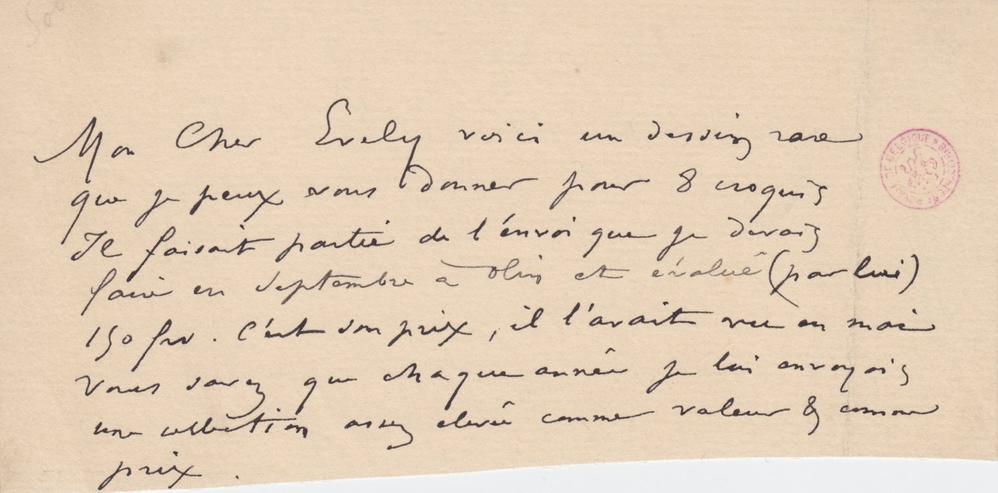 Mon Cher Evely voici un dessin rare
que je peux vous donner pour 8 croquis
Il faisait partie de l'envoi que je devais
faire en Septembre à Olin et évalué (par lui)
150 frs. C'est son prix, il l'avait vu en mai
Vous savez que chaque année je lui envoyais
une collection assez elevée comme valeur & comme
prix.